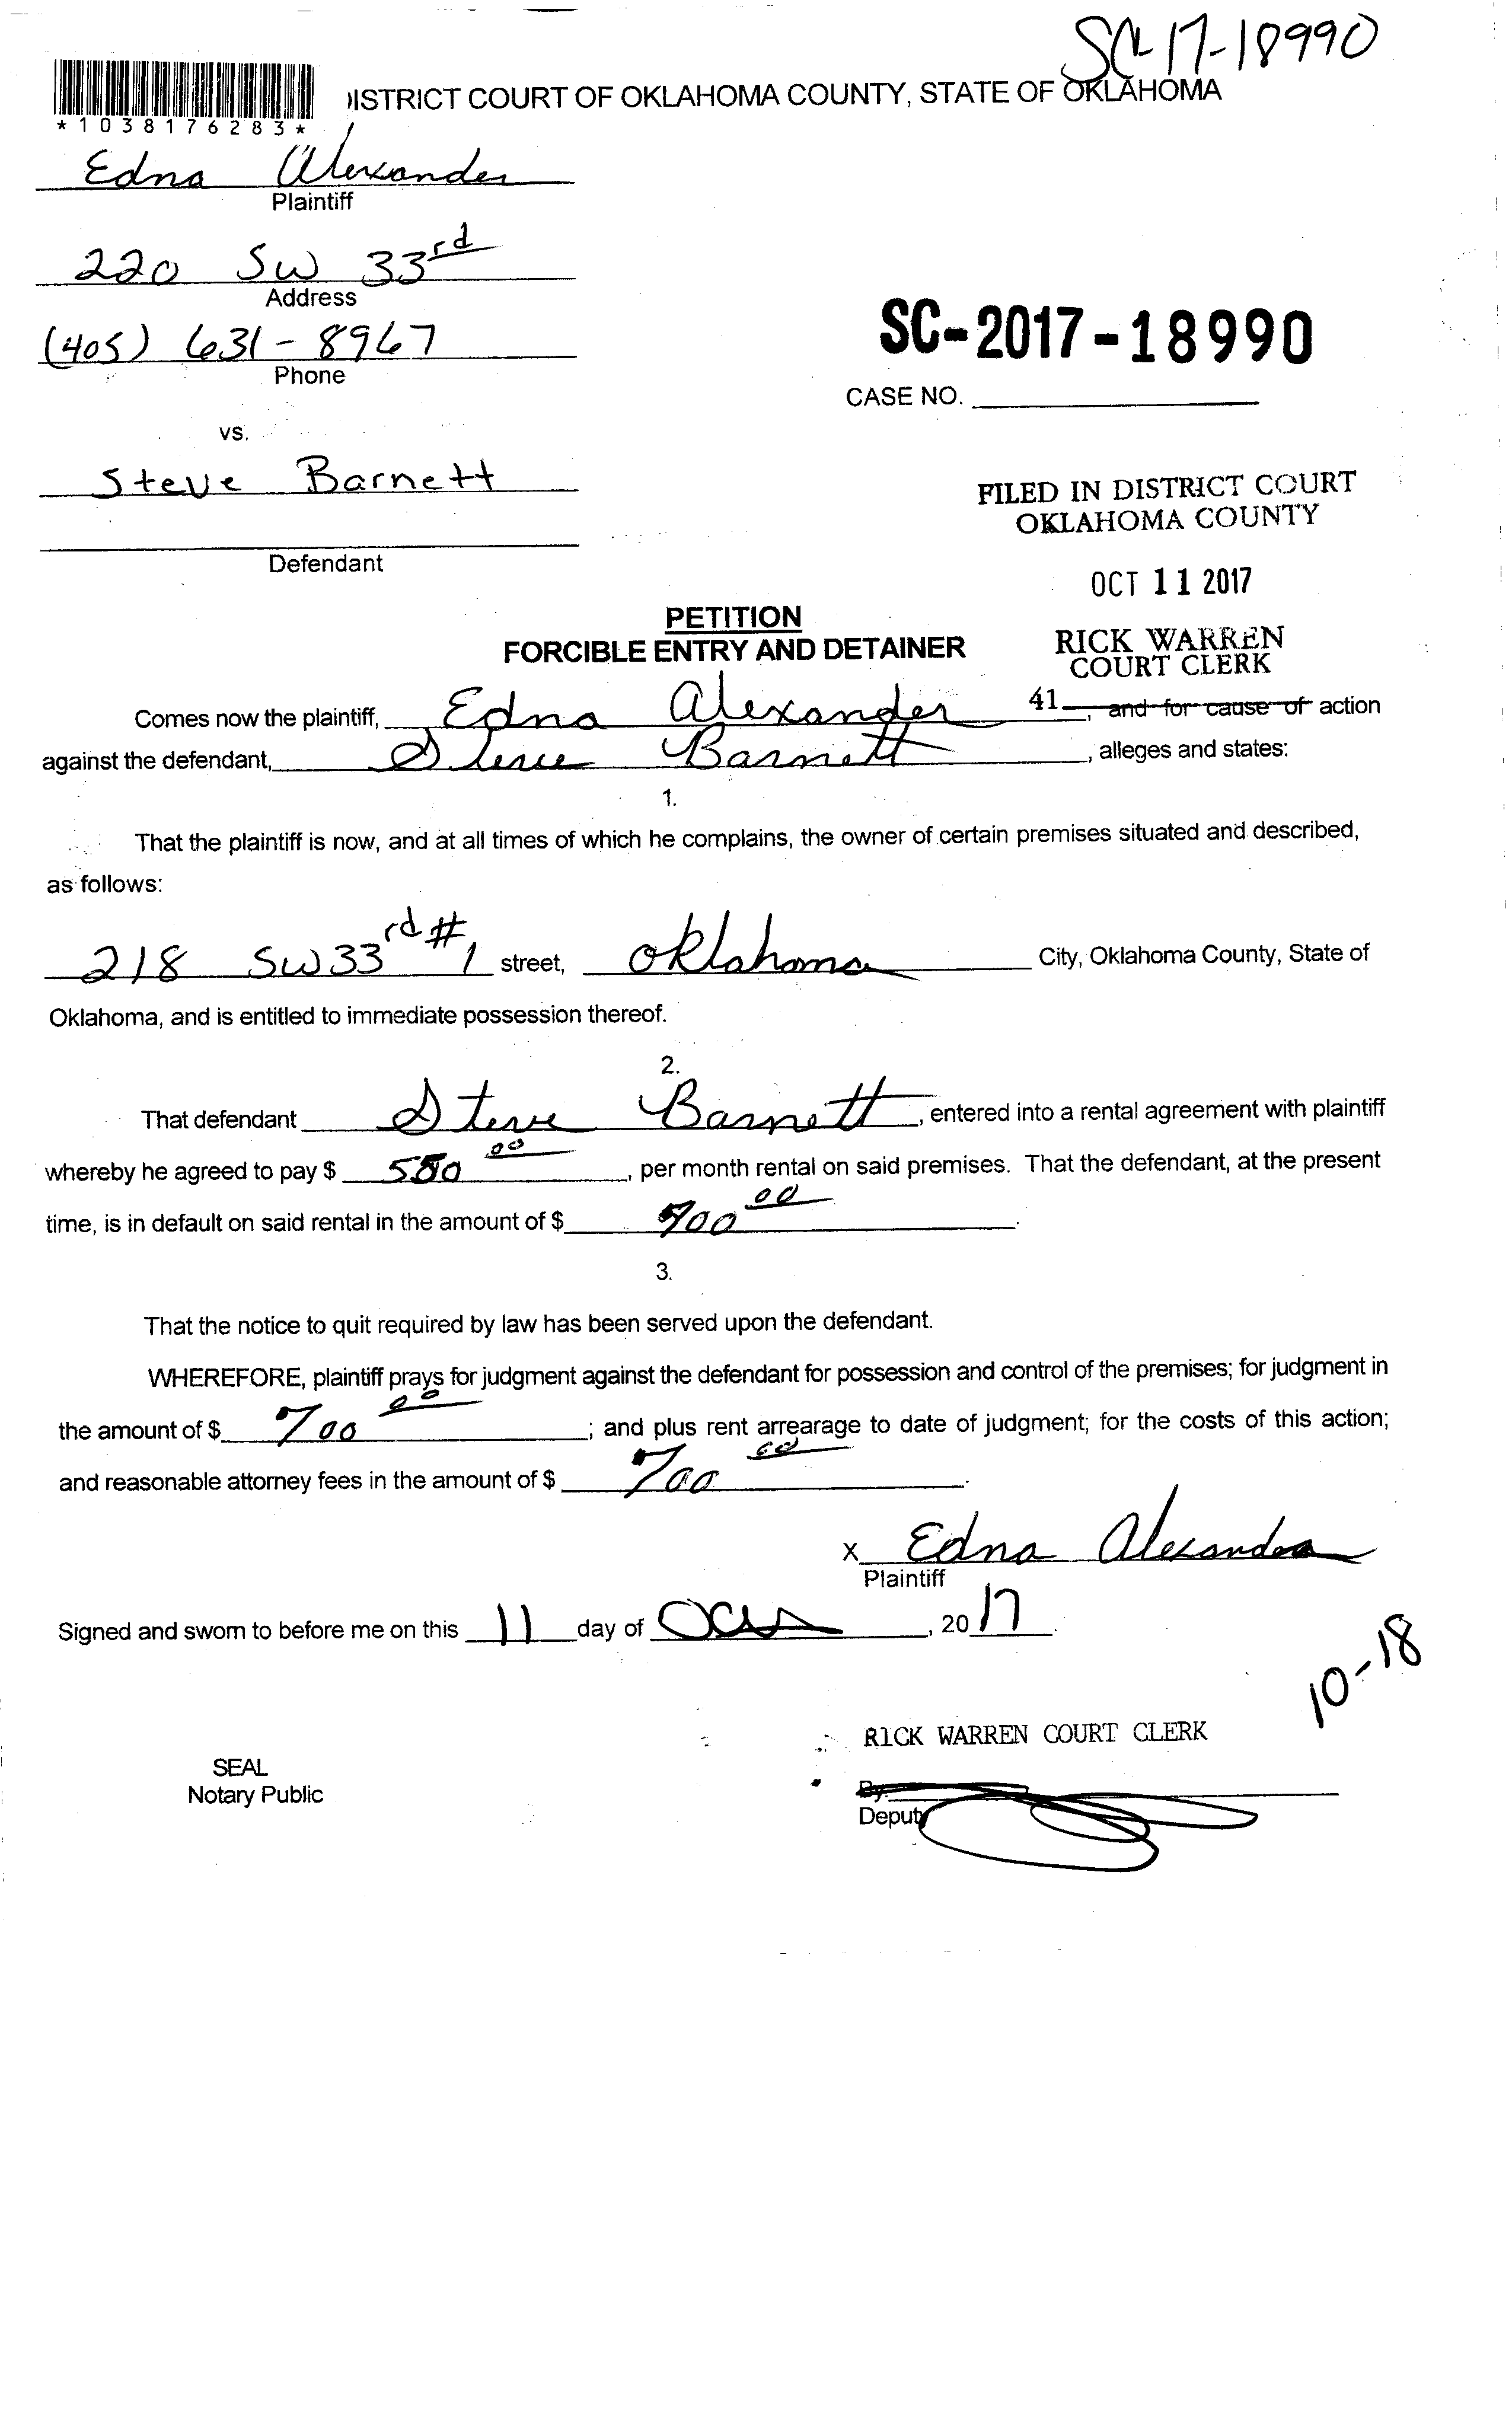 SC-17-18990
*1038176283*
ISTRICT COURT OF OKLAHOMA COUNTY, STATE OF OKLAHOMA
Edna Alexander
Plaintiff
220 SW 33rd
Address
(405) 631-8967
Phone
SC-2017-18990
CASE NO.
vs.
Steve Barnett
Defendant
FILED IN DISTRICT COURT
OKLAHOMA COUNTY
OCT 11 2017
PETITION
FORCIBLE ENTRY AND DETAINER
RICK WARREN
COURT CLERK
41
Comes now the plaintiff, Edna Alexander, and for cause of action
against the defendant, Steve Barnett, alleges and states:
1.
That the plaintiff is now, and at all times of which he complains, the owner of certain premises situated and described,
as follows:
218 SW 33rd #1 street, Oklahoma City, Oklahoma County, State of
Oklahoma, and is entitled to immediate possession thereof.
2.
That defendant Steve Barnett, entered into a rental agreement with plaintiff
whereby he agreed to pay $ 00, per month rental on said premises. That the defendant, at the present
time, is in default on said rental in the amount of $ 00.
3.
That the notice to quit required by law has been served upon the defendant.
WHEREFORE, plaintiff prays for judgment against the defendant for possession and control of the premises; for judgment in
the amount of $ 700 00; and plus rent arrearage to date of judgment; for the costs of this action;
and reasonable attorney fees in the amount of $ 700 00.
X Edna Alexander
Plaintiff
Signed and sworn to before me on this 11 day of, 2017.
10-18
RICK WARREN COURT CLERK
SEAL
Notary Public
By
Deputy